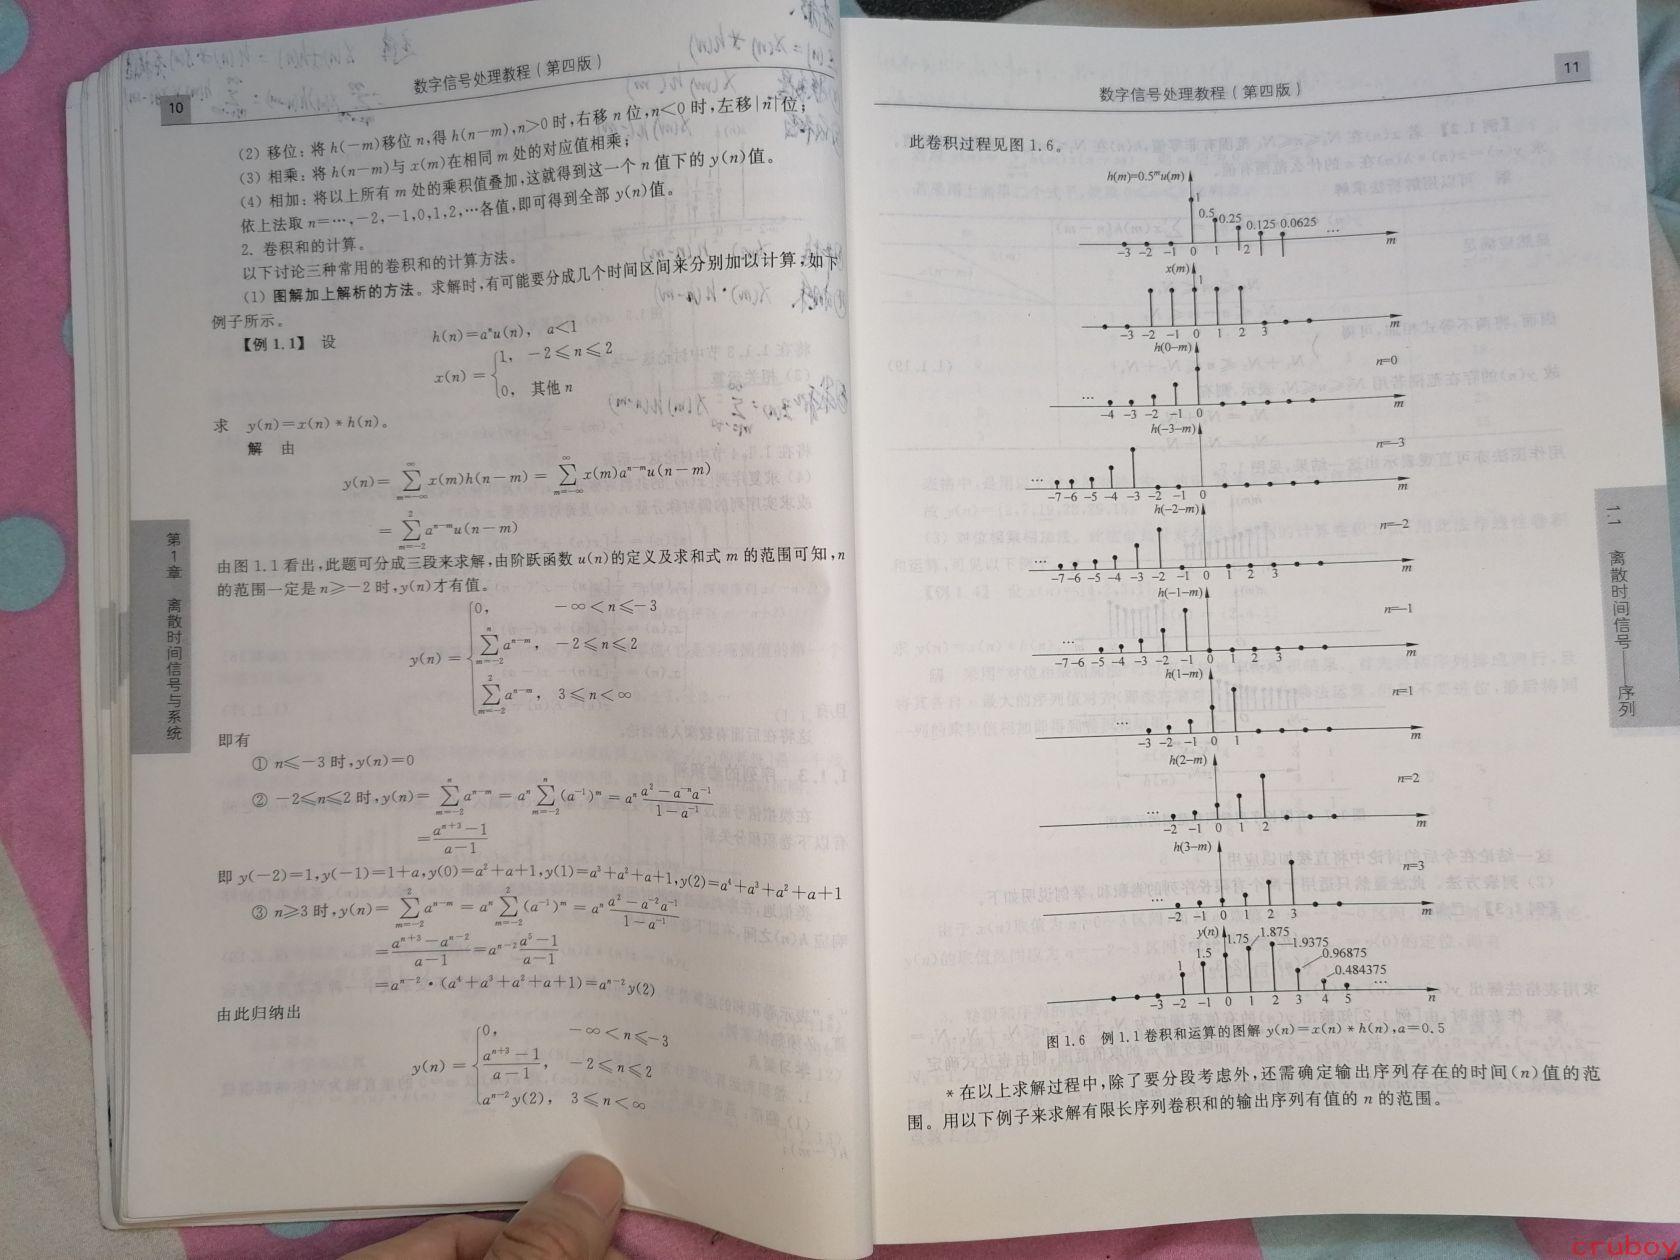 10
数字信号处理教程(第四版)
(2) 移位:将 h(-m)移位 n,得 h(n-m),n>0 时,右移 n 位,n<0 时,左移|n|位;
(3) 相乘:将 h(n-m)与 x(m)在相同 m 处的对应值相乘;
(4) 相加:将以上所有 m 处的乘积值叠加,这就得到这一个 n 值下的 y(n)值。
依上法取 n=…,-2,-1,0,1,2,…各值,即可得到全部 y(n)值。
2. 卷积和的计算。
以下讨论三种常用的卷积和的计算方法。
(1) 图解加上解析的方法。求解时,有可能要分成几个时间区间来分别加以计算,如下
例子所示。
【例1.1】 设
h(n)=aⁿu(n), a<1
x(n)={1, -2≤n≤2
0, 其他 n
求 y(n)=x(n)*h(n)。
解 由
y(n)=∑_{m=-∞}^{∞} x(m)h(n-m)=∑_{m=-∞}^{∞} x(m)a^{n-m}u(n-m)
=∑_{m=-2}^{2} a^{n-m}u(n-m)
由图 1.1 看出,此题可分成三段来求解,由阶跃函数 u(n)的定义及求和式 m 的范围可知,n
的范围一定是 n≥-2 时,y(n)才有值。
y(n)={0, -∞<n≤-3
∑_{m=-2}^{n} a^{n-m}, -2≤n≤2
∑_{m=-2}^{2} a^{n-m}, 3≤n<∞
即有
① n≤-3 时,y(n)=0
② -2≤n≤2 时,y(n)=∑_{m=-2}^{n} a^{n-m}=aⁿ∑_{m=-2}^{n}(a⁻¹)^m=aⁿ (a²-a⁻ⁿa⁻¹)/(1-a⁻¹)
=(a^{n+3}-1)/(a-1)
即 y(-2)=1,y(-1)=1+a,y(0)=a²+a+1,y(1)=a³+a²+a+1,y(2)=a⁴+a³+a²+a+1
③ n≥3 时,y(n)=∑_{m=-2}^{2} a^{n-m}=aⁿ∑_{m=-2}^{2}(a⁻¹)^m=aⁿ (a²-a⁻²a⁻¹)/(1-a⁻¹)
=(a^{n+3}-a^{n-2})/(a-1)=a^{n-2} (a⁵-1)/(a-1)
=a^{n-2}·(a⁴+a³+a²+a+1)=a^{n-2}y(2)
由此归纳出
y(n)={0, -∞<n≤-3
(a^{n+3}-1)/(a-1), -2≤n≤2
a^{n-2}y(2), 3≤n<∞
第1章 离散时间信号与系统
数字信号处理教程(第四版)
11
此卷积过程见图 1.6。
h(m)=0.5^m u(m)
1
0.5 0.25 0.125 0.0625 …
-3 -2 -1 0 1 2 m
x(m)
1
-3 -2 -1 0 1 2 3 m
h(0-m)
n=0
…
-4 -3 -2 -1 0 m
h(-3-m)
n=-3
…
-7 -6 -5 -4 -3 -2 -1 0 m
h(-2-m)
n=-2
…
-7 -6 -5 -4 -3 -2 -1 0 1 2 3 m
h(-1-m)
n=-1
…
-7 -6 -5 -4 -3 -2 -1 0 1 2 3 m
h(1-m)
n=1
…
-3 -2 -1 0 1 m
h(2-m)
n=2
…
-2 -1 0 1 2 m
h(3-m)
n=3
…
-2 -1 0 1 2 3 m
y(n)
1 1.5 1.75 1.875 1.9375 0.96875 0.484375 …
-3 -2 -1 0 1 2 3 4 5 n
图 1.6 例 1.1 卷积和运算的图解 y(n)=x(n)*h(n),a=0.5
* 在以上求解过程中,除了要分段考虑外,还需确定输出序列存在的时间(n)值的范
围。用以下例子来求解有限长序列卷积和的输出序列有值的 n 的范围。
1.1 离散时间信号——序列
cruboy